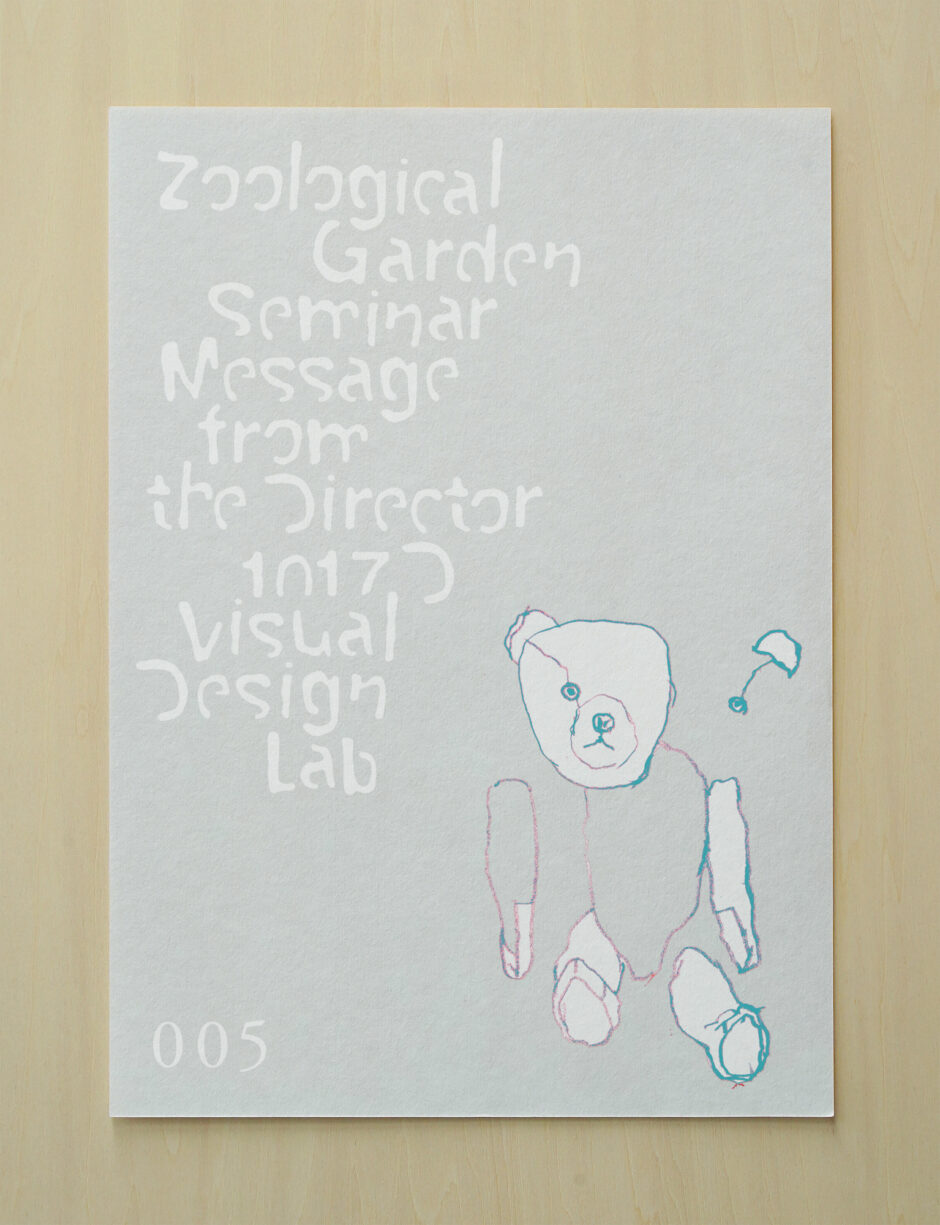 Zoological
Garden
Seminar
Message
from
the Director
1n17 D
Visual
Design
Lab
005